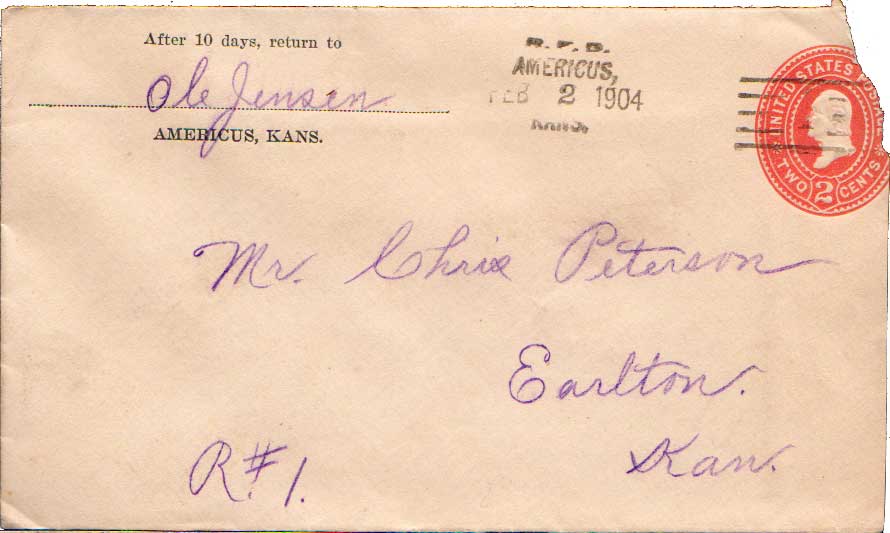 After 10 days, return to
Ole Jensen
AMERICUS, KANS.
R. F. D.
AMERICUS,
FEB 2 1904
KANS.
UNITED STATES POSTAGE
TWO 2 CENTS
Mr. Chris Peterson
Earlton.
Kan.
R#1.